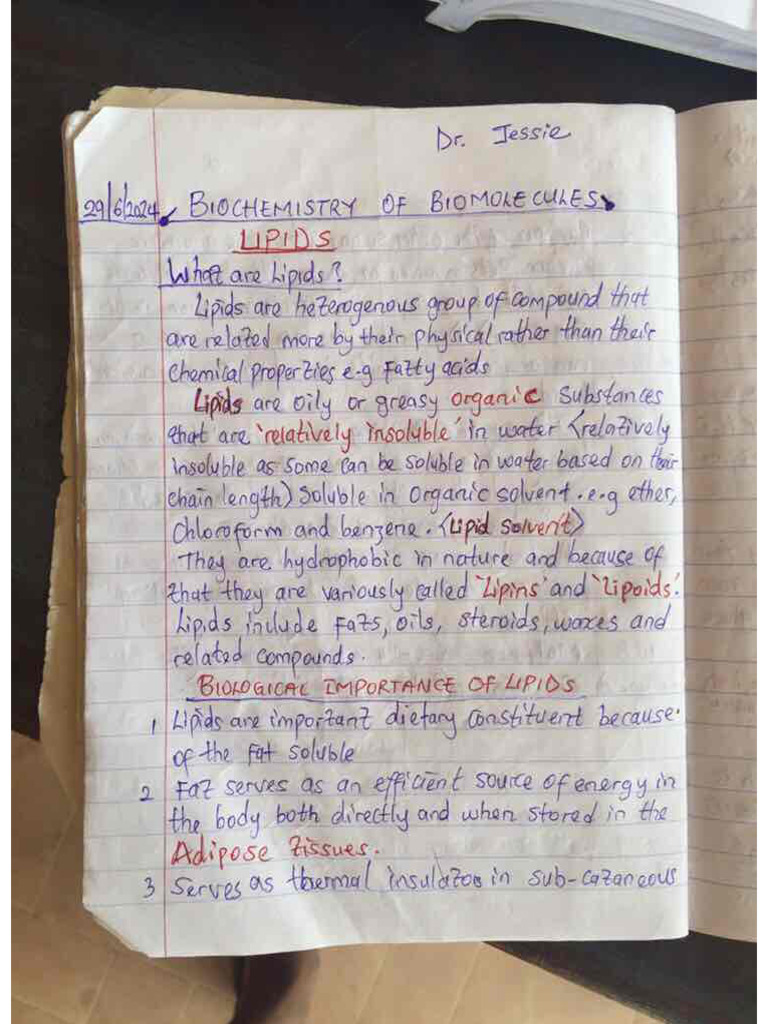 Dr. Jessie
29/6/2024 BIOCHEMISTRY OF BIOMOLECULES
LIPIDS
What are Lipids?
Lipids are heterogenous group of compound that
are related more by their physical rather than their
chemical properties e.g Fatty acids
Lipids are oily or greasy organic substances
that are 'relatively insoluble' in water (relatively
insoluble as some can be soluble in water based on their
chain length) Soluble in organic solvent. e.g ether,
Chloroform and benzene. (Lipid solvent)
They are hydrophobic in nature and because of
that they are variously called 'Lipins' and 'Lipoids'.
Lipids include fats, oils, steroids, waxes and
related compounds.
BIOLOGICAL IMPORTANCE OF LIPIDS
1 Lipids are important dietary constituent because
of the fat soluble
2 Fat serves as an efficient source of energy in
the body both directly and when stored in the
Adipose tissues.
3 Serves as thermal insulator in sub-cataneous